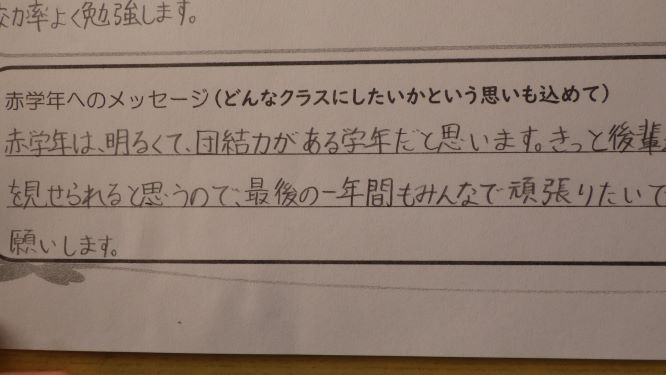 効率よく勉強します。
赤学年へのメッセージ(どんなクラスにしたいかという思いも込めて)
赤学年は、明るくて、団結力がある学年だと思います。きっと後輩
を見せられると思うので、最後の一年間もみんなで頑張りたいで
願いします。